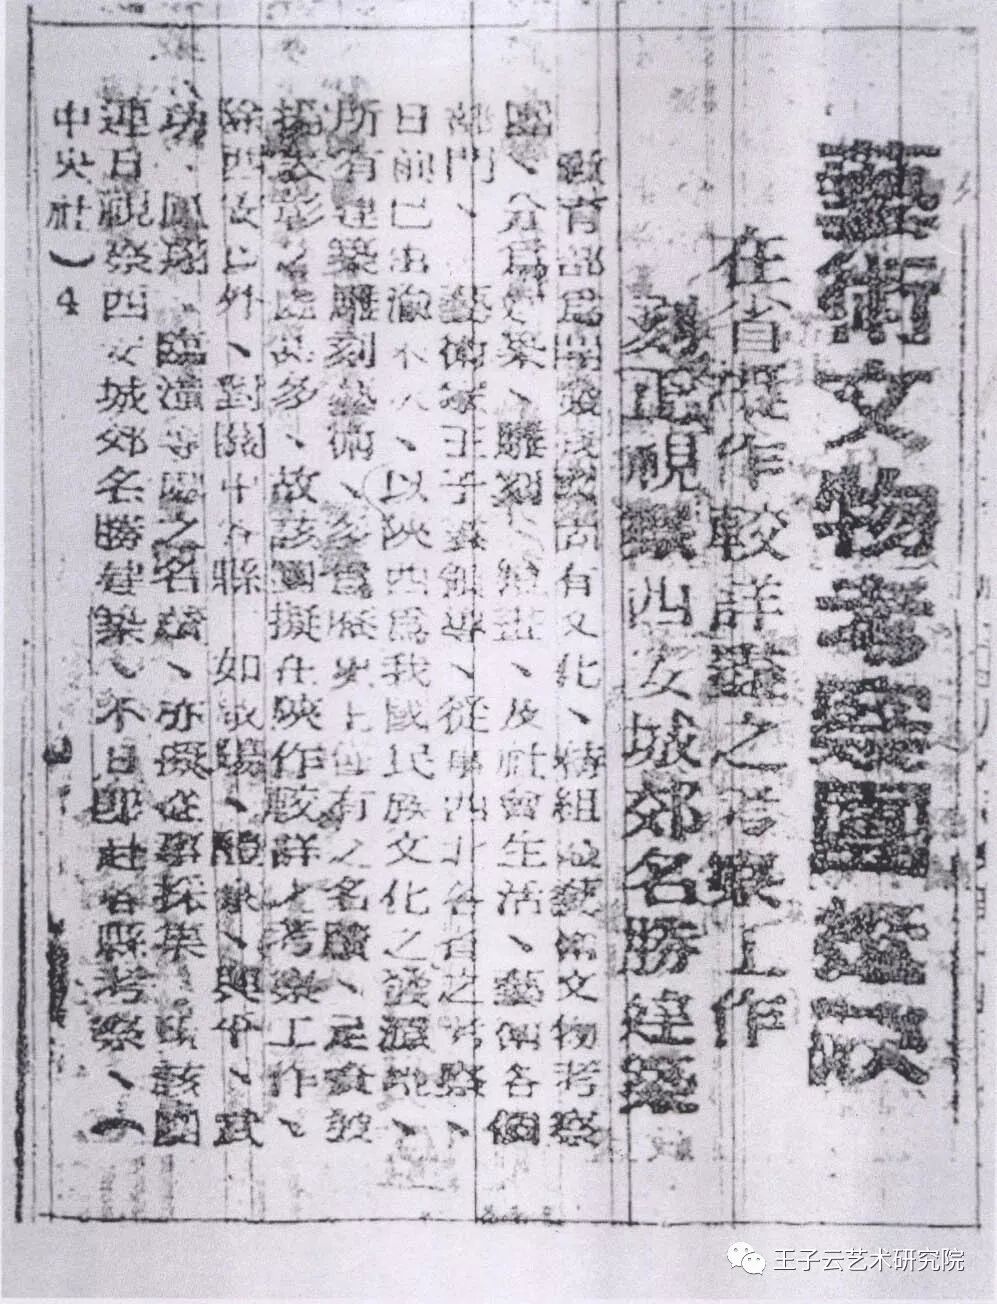 藝術文物考察團蒞陝
在省擬作較詳盡之考察工作
刻正視察西安城郊名勝建築
教育部爲開發我國固有文化、特組織藝術文物考察
團、分爲建築、雕刻、繪畫、及社會生活、藝術各個
部門、藝術家王子雲領導、從事西北各省之考察、
日前已出渝來陝、以陝西爲我國民族文化之發源地、
所有建築雕刻藝術、多爲歷史上僅有之名蹟、足資
之處甚多、故該團擬在陝作較詳之考察工作、
除西安以外、對關中各縣 如咸陽、醴泉、興平、武
功、鳳翔 臨潼等縣之名蹟、亦擬從事採集 該團
連日視察西安城郊名勝建築、不日即赴各縣考察、(
中央社)4
王子云艺术研究院